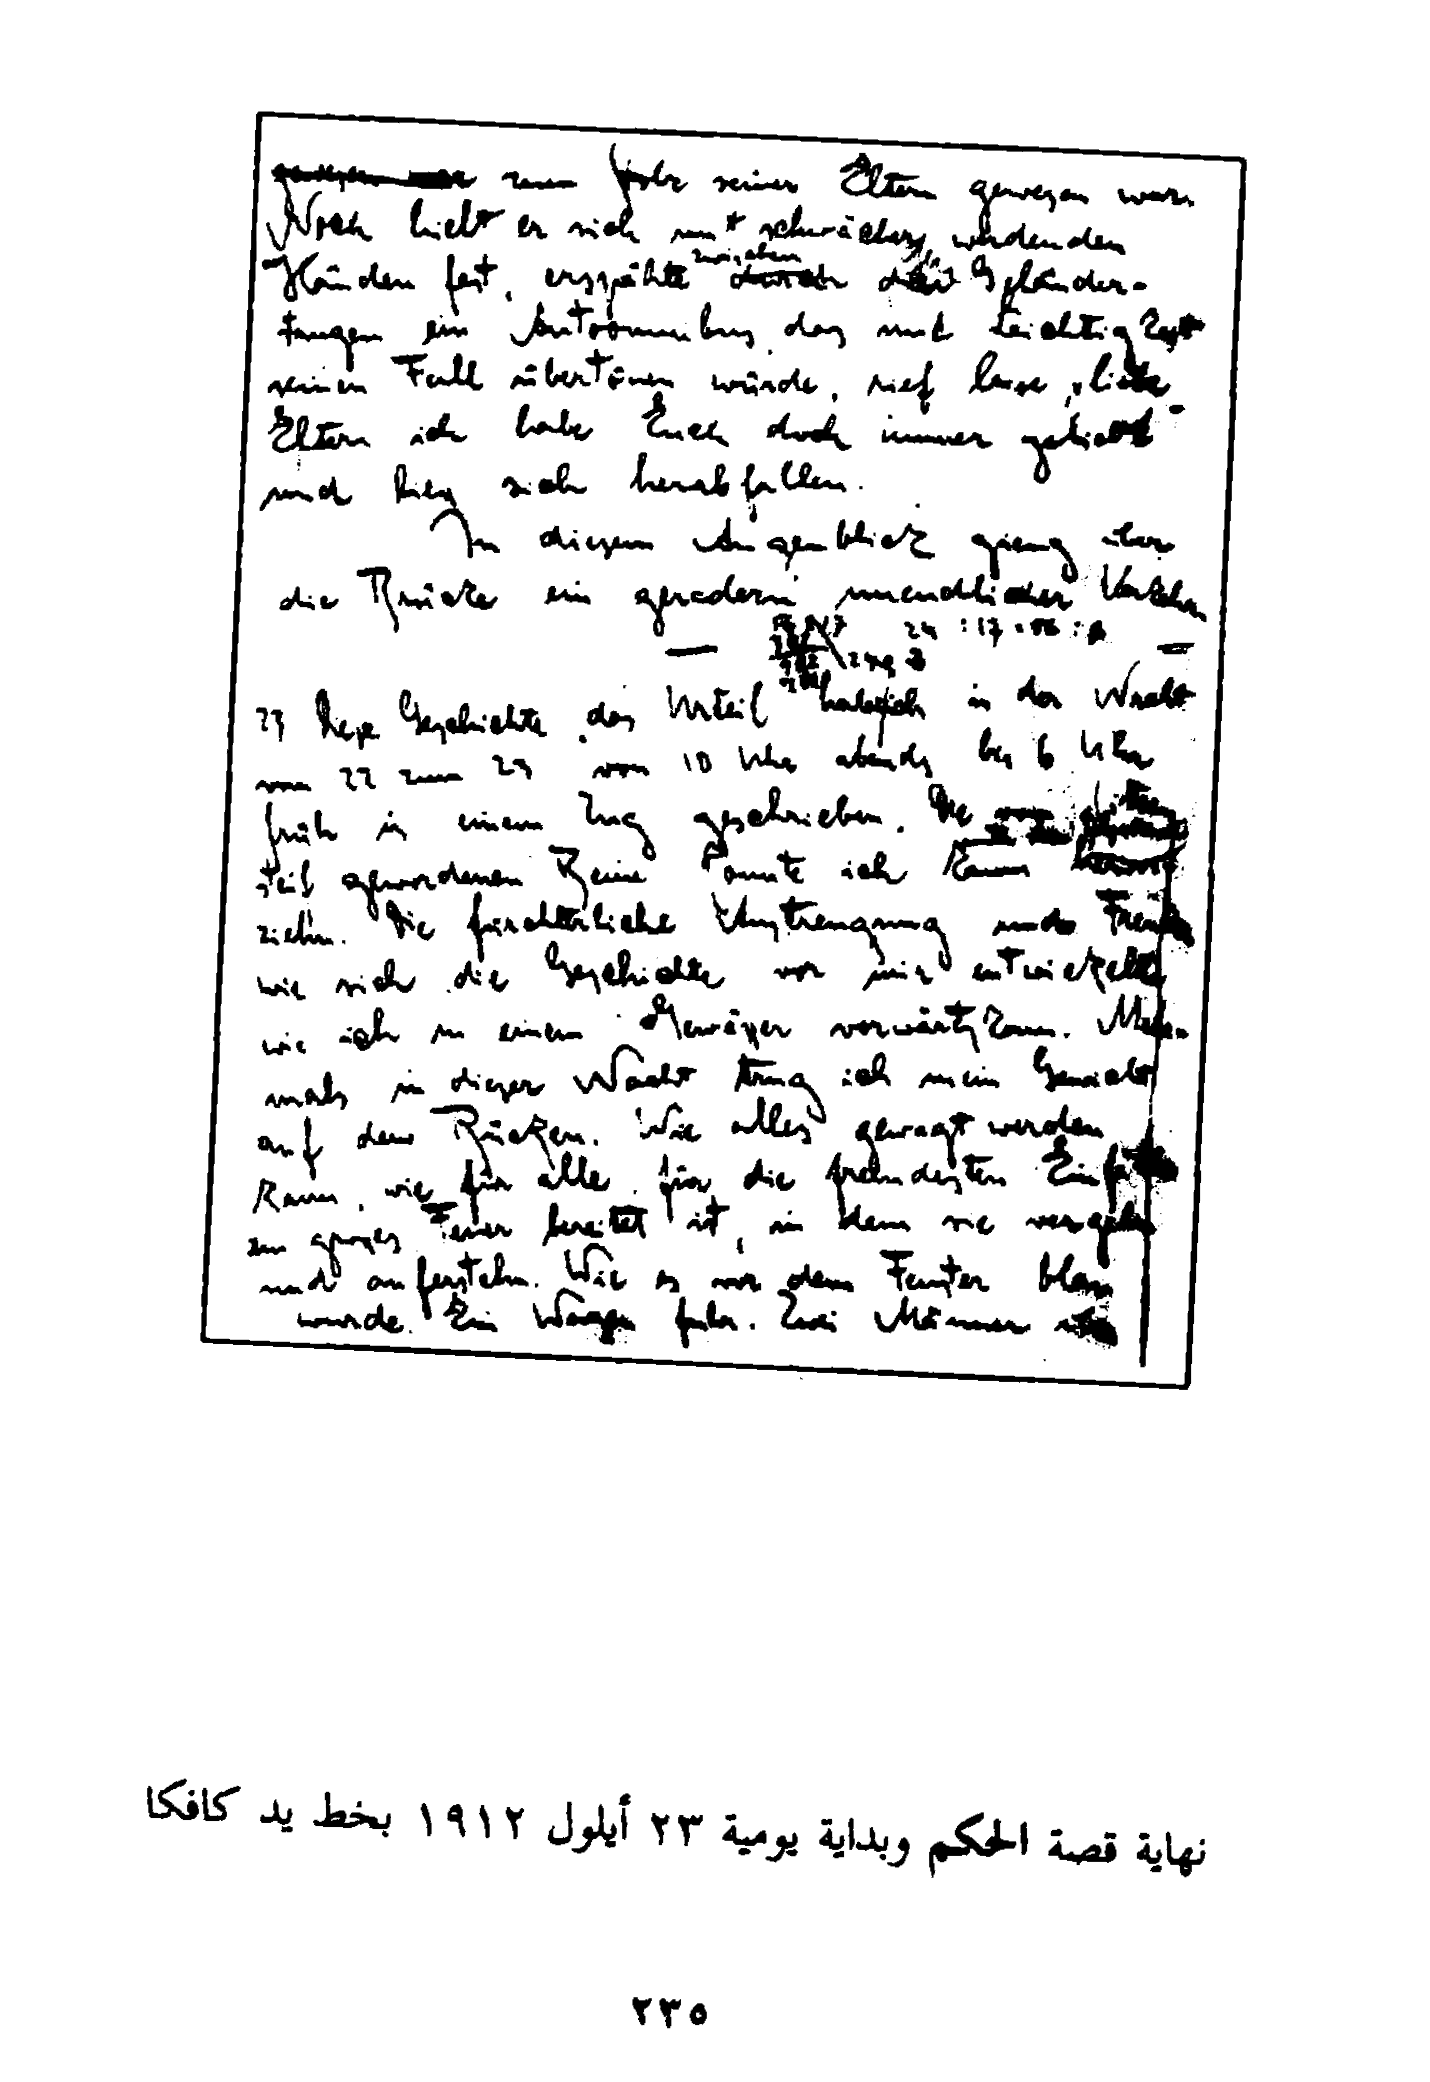 zum Stolz seiner Eltern gewesen war.
Noch hielt er sich mit schwächer werdenden
zwischen
Händen fest, erspähte durch den Geländer-
stangen ein Autoomnibus, das mit Leichtigkeit
seinen Fall übertönen würde, rief leise „liebe
Eltern ich habe Euch doch immer geliebt
und ließ sich herabfallen.
In diesem Augenblick gieng über
die Brücke ein geradezu unendlicher Verkehr
23 Diese Geschichte „das Urteil" habe ich in der Nacht
vom 22 zum 23 von 10 Uhr abends bis 6 Uhr
früh in einem Zug geschrieben. Die vom Sitzen
steif gewordenen Beine konnte ich kaum
ziehn. Die fürchterliche Anstrengung und Freude
wie sich die Geschichte vor mir entwickelte
wie ich in einem Gewässer vorwärtskam. Mehr-
mals in dieser Nacht trug ich mein Gewicht
auf dem Rücken. Wie alles gewagt werden
kann, wie für alle, für die fremdesten Einfälle
ein großes Feuer bereitet ist, in dem sie vergehn
und auferstehn. Wie es vor dem Fenster blau
wurde. Ein Wagen fuhr. Zwei Männer
نهاية قصة الحكم وبداية يومية ٢٣ أيلول ١٩١٢ بخط يد كافكا
٢٣٥